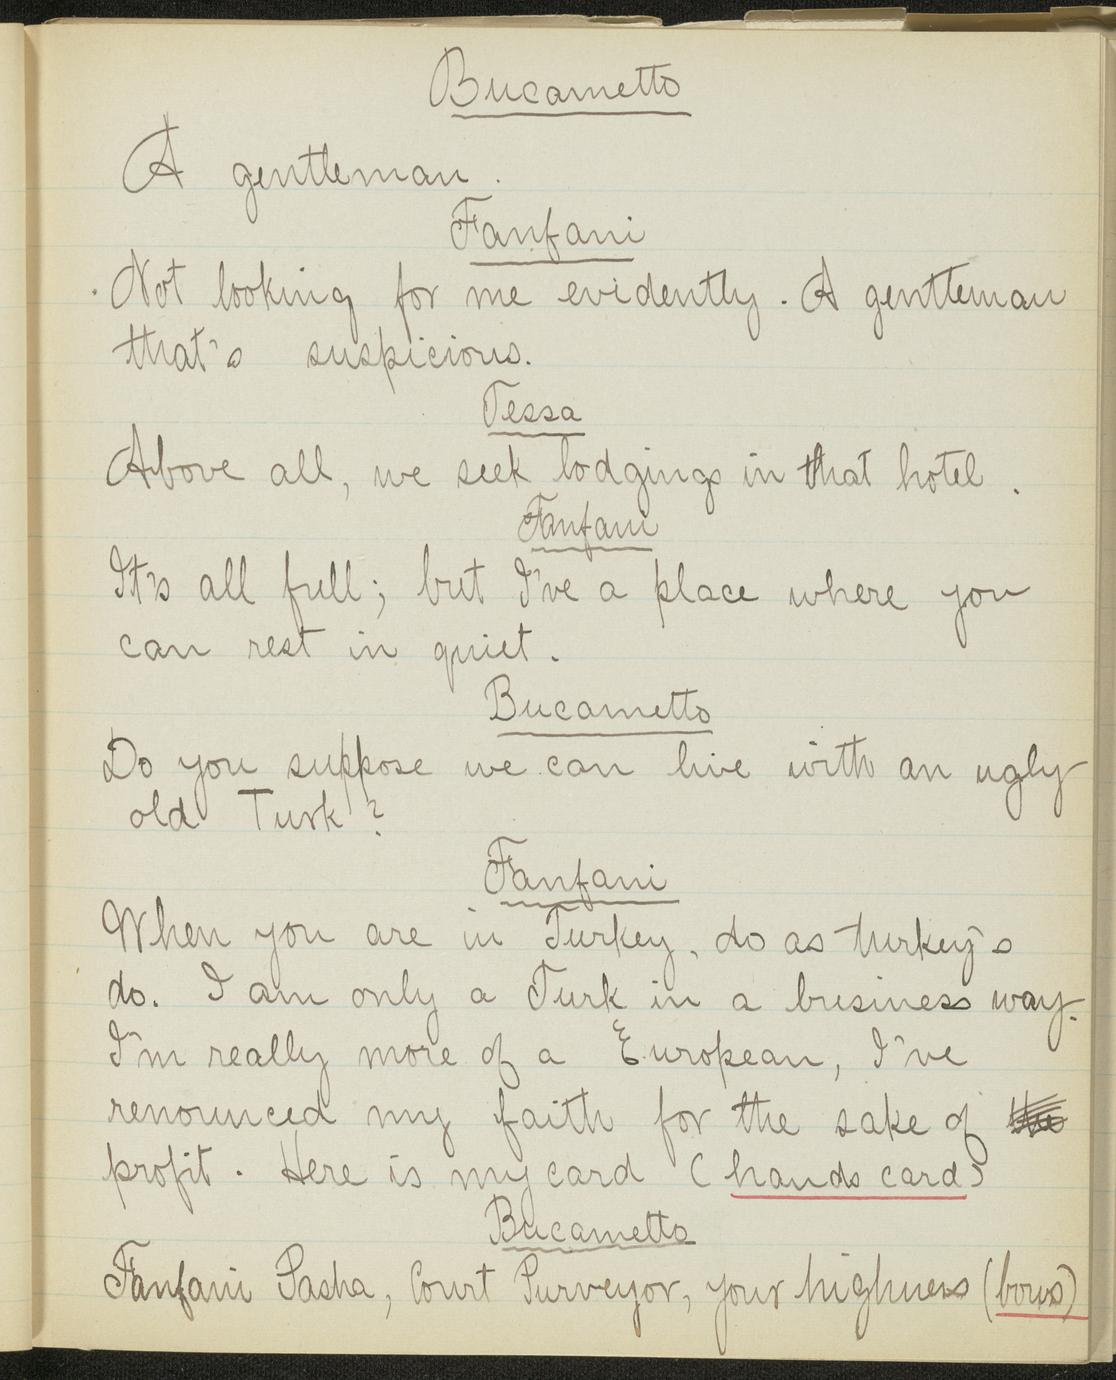 Bucametto
A gentleman.
Fanfani
Not looking for me evidently. A gentleman
that's suspicious.
Tessa
Above all, we seek lodgings in that hotel.
Fanfani
It's all full; but I've a place where you
can rest in quiet.
Bucametto
Do you suppose we can live with an ugly
old Turk?
Fanfani
When you are in Turkey, do as turkey's
do. I am only a Turk in a business way.
I'm really more of a European, I've
renounced my faith for the sake of
profit. Here is my card (hands card)
Bucametto
Fanfani Pasha, Court Purveyor, your highness (bows)